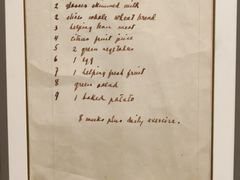 2 glasses skimmed milk
2 slices whole wheat bread
3 helping lean meat
4 citrus fruit juice
5 2 green vegetables
6 1 egg
7 1 helping fresh fruit
8 green salad
9 1 baked potato
8 weeks plus daily exercise.